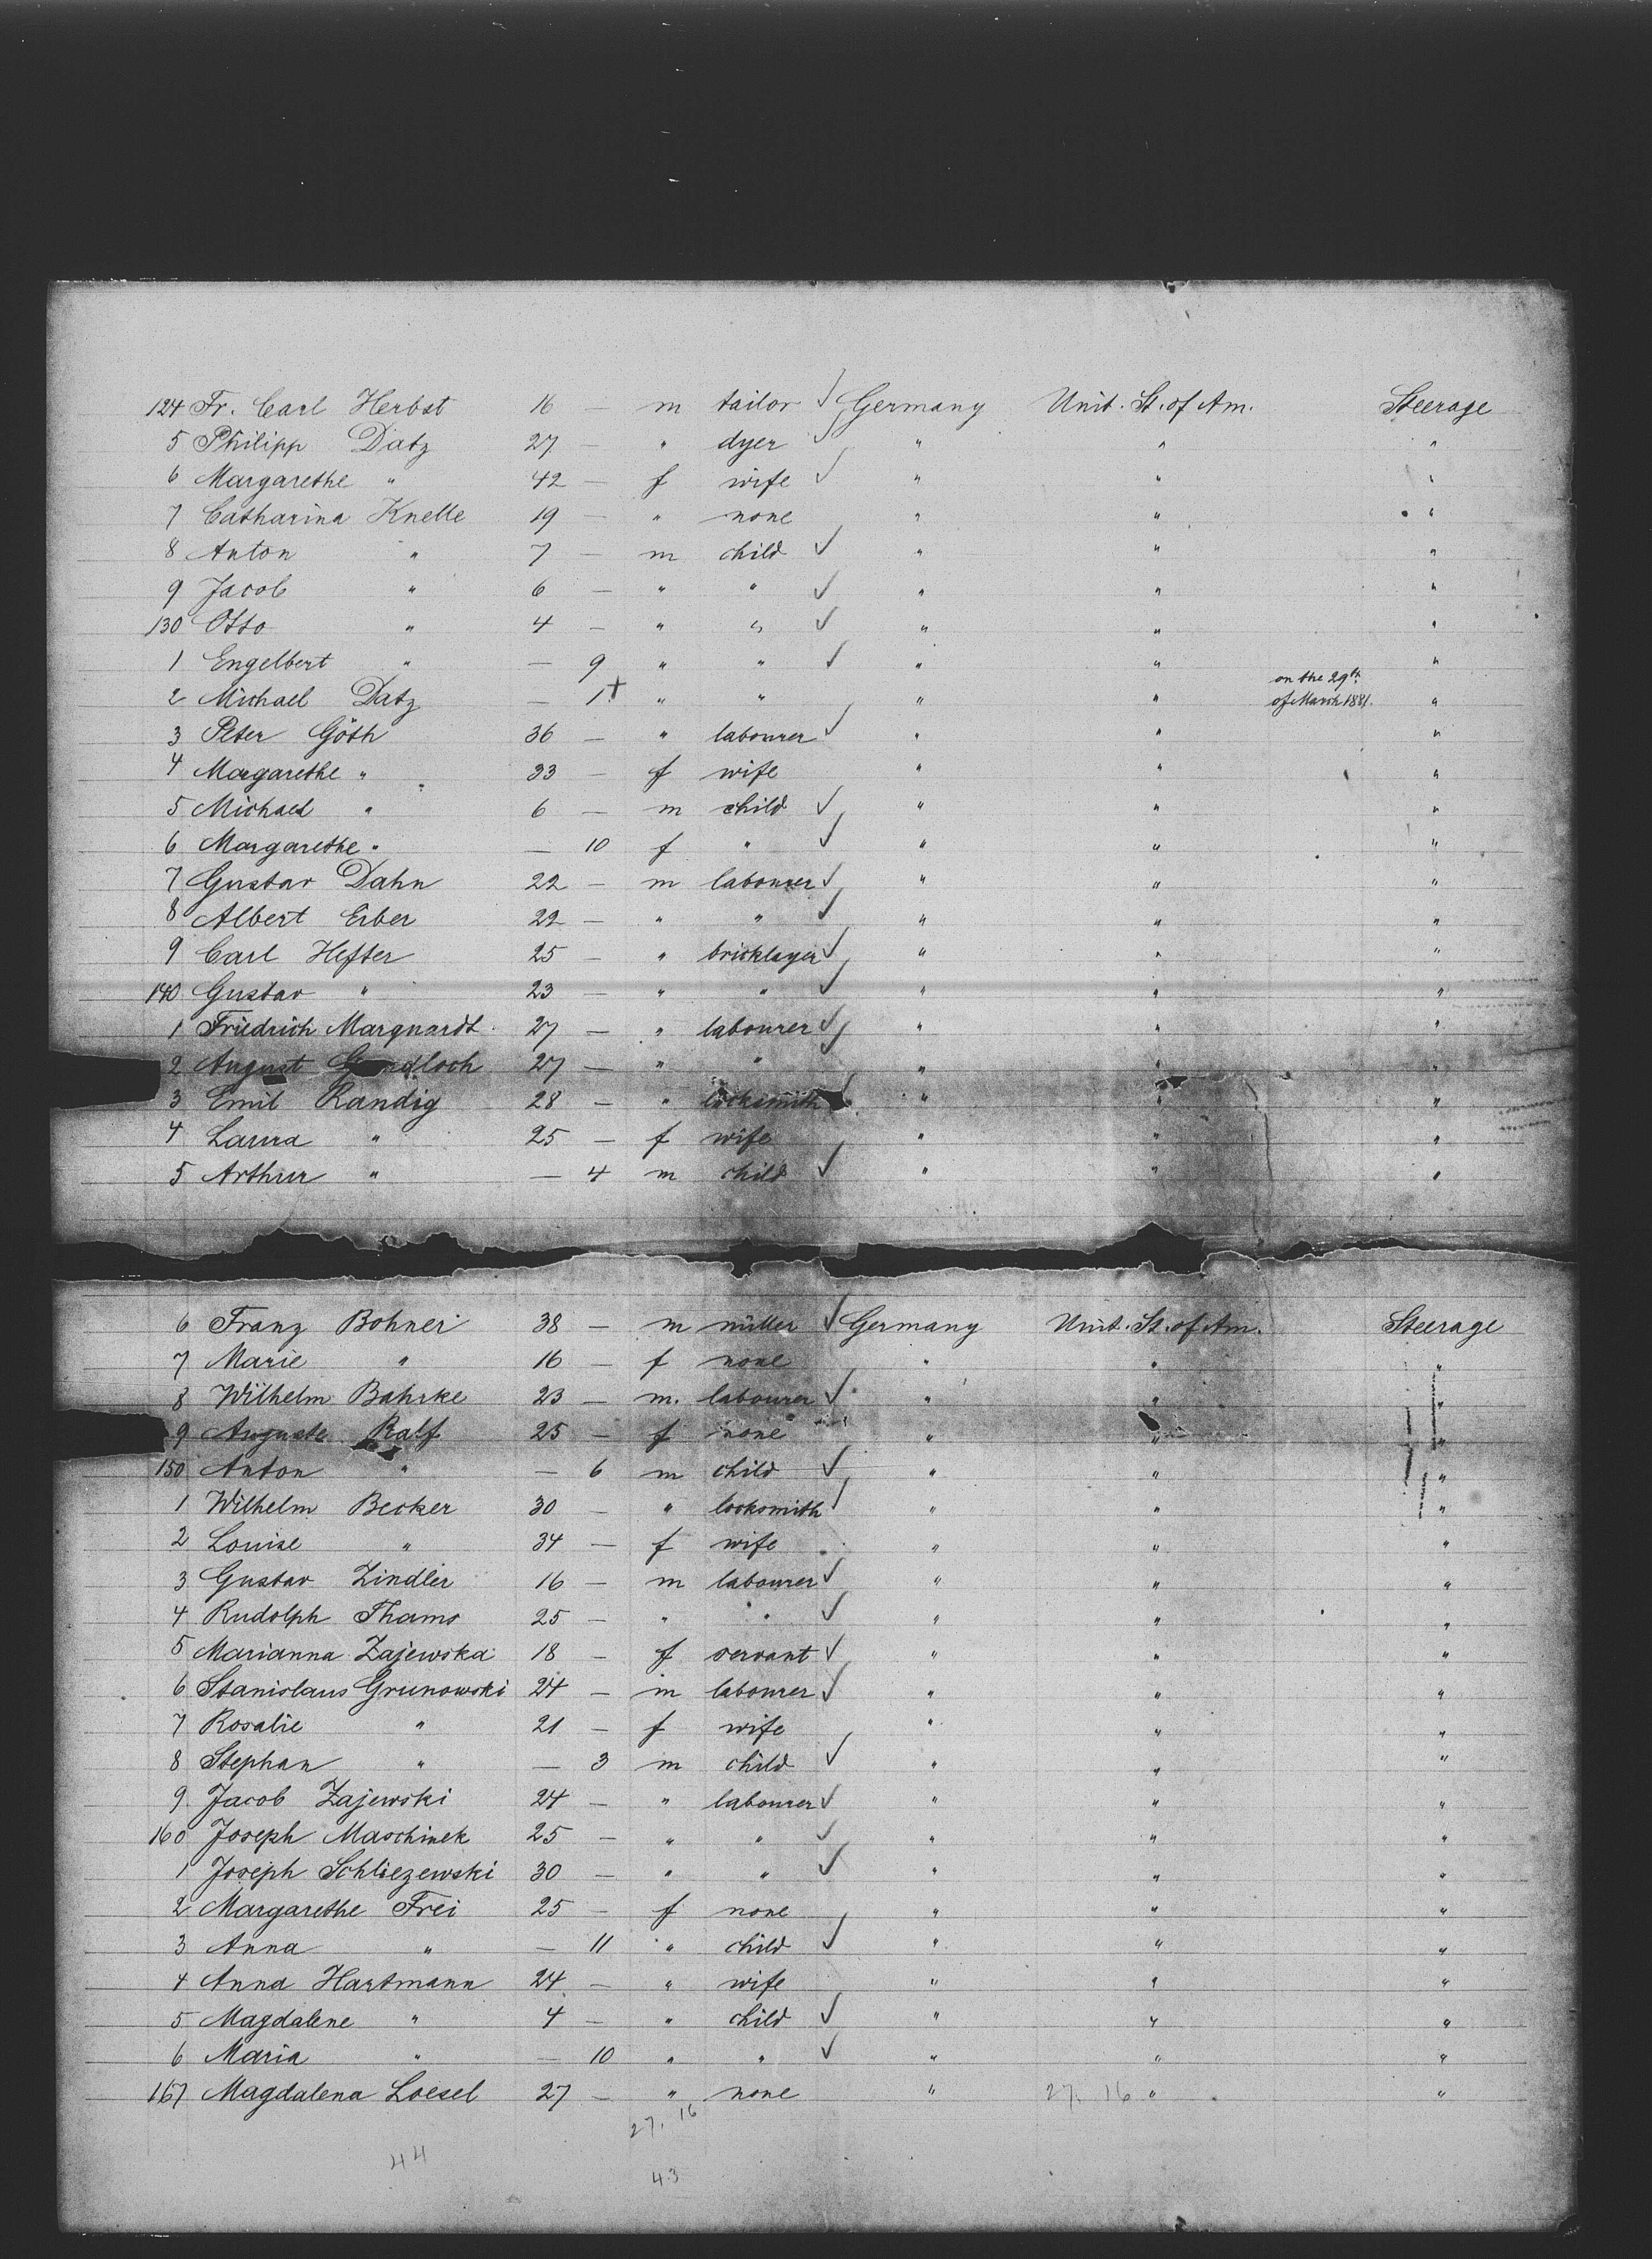 124 Fr. Carl Herbst 16 — m tailor ✓ Germany Unit. St. of Am. Steerage
5 Philipp Datz 27 — " dyer ✓ " " "
6 Margarethe " 42 — f wife ✓ " " "
7 Catharina Knelle 19 — " none " " "
8 Anton " 7 — m child ✓ " " "
9 Jacob " 6 — " " ✓ " " "
130 Otto " 4 — " " ✓ " " "
1 Engelbert " — 9 " " ✓ " " "
on the 29th
2 Michael Datz — 1 + " " " " of March 1881. "
3 Peter Göth 36 — " labourer ✓ " " "
4 Margarethe " 33 — f wife " " "
5 Michael " 6 — m child ✓ " " "
6 Margarethe " — 10 f " ✓ " " "
7 Gustav Dahn 22 — m labourer ✓ " " "
8 Albert Erber 22 — " " ✓ " " "
9 Carl Hefter 25 — " bricklayer ✓ " " "
140 Gustav " 23 — " " ✓ " " "
1 Friedrich Marquardt 27 — " labourer ✓ " " "
2 August 27 — " " " " "
3 Emil Randig 28 — " locksmith ✓ " " "
4 Laura " 25 — f wife " " "
5 Arthur " — 4 m child ✓ " " "
6 Franz Bohner 38 — m miller ✓ Germany Unit. St. of Am. Steerage
7 Marie " 16 — f none " " "
8 Wilhelm Bahrke 23 — m. labourer ✓ " " "
9 Auguste Ralf 25 — f none " " "
150 Anton " — 6 m child ✓ " " "
1 Wilhelm Becker 30 — " locksmith ✓ " " "
2 Louise " 34 — f wife " " "
3 Gustav Zindler 16 — m labourer ✓ " " "
4 Rudolph Thams 25 — " " ✓ " " "
5 Marianna Zajewska 18 — f servant ✓ " " "
6 Stanislaus Grunowski 24 — m labourer ✓ " " "
7 Rosalie " 21 — f wife " " "
8 Stephan " — 3 m child ✓ " " "
9. Jacob Zajewski 24 — " labourer ✓ " " "
160 Joseph Maschinek 25 — " " ✓ " " "
1 Joseph Schliezewski 30 — " " ✓ " " "
2 Margarethe Frei 25 — f none " " "
3 Anna " — 11 " child ✓ " " "
4 Anna Hartmann 24 — " wife " " "
5 Magdalene " 4 — " child ✓ " " "
6 Maria " — 10 " " ✓ " " "
167 Magdalena Loesel 27 — " none " 27. 16 " "
27. 16
44
43